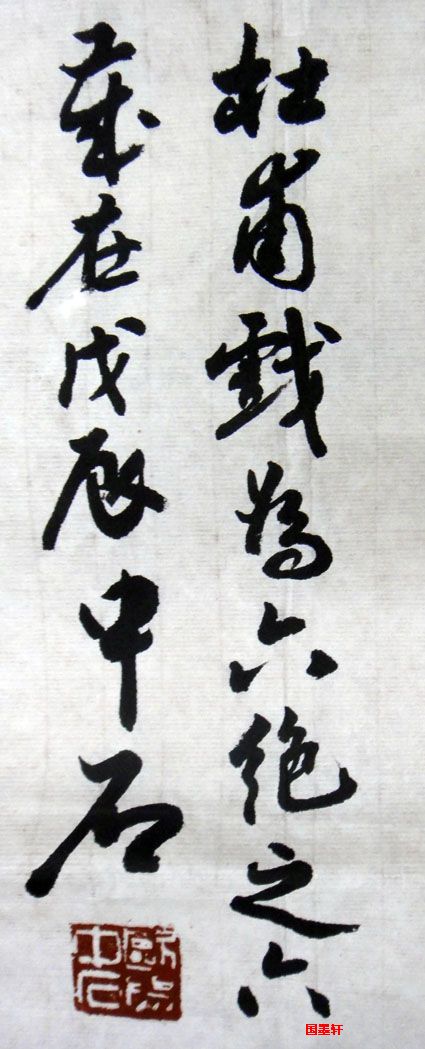 杜甫戲為六絕之六
歲在戊辰中石
歐陽中石
国墨轩